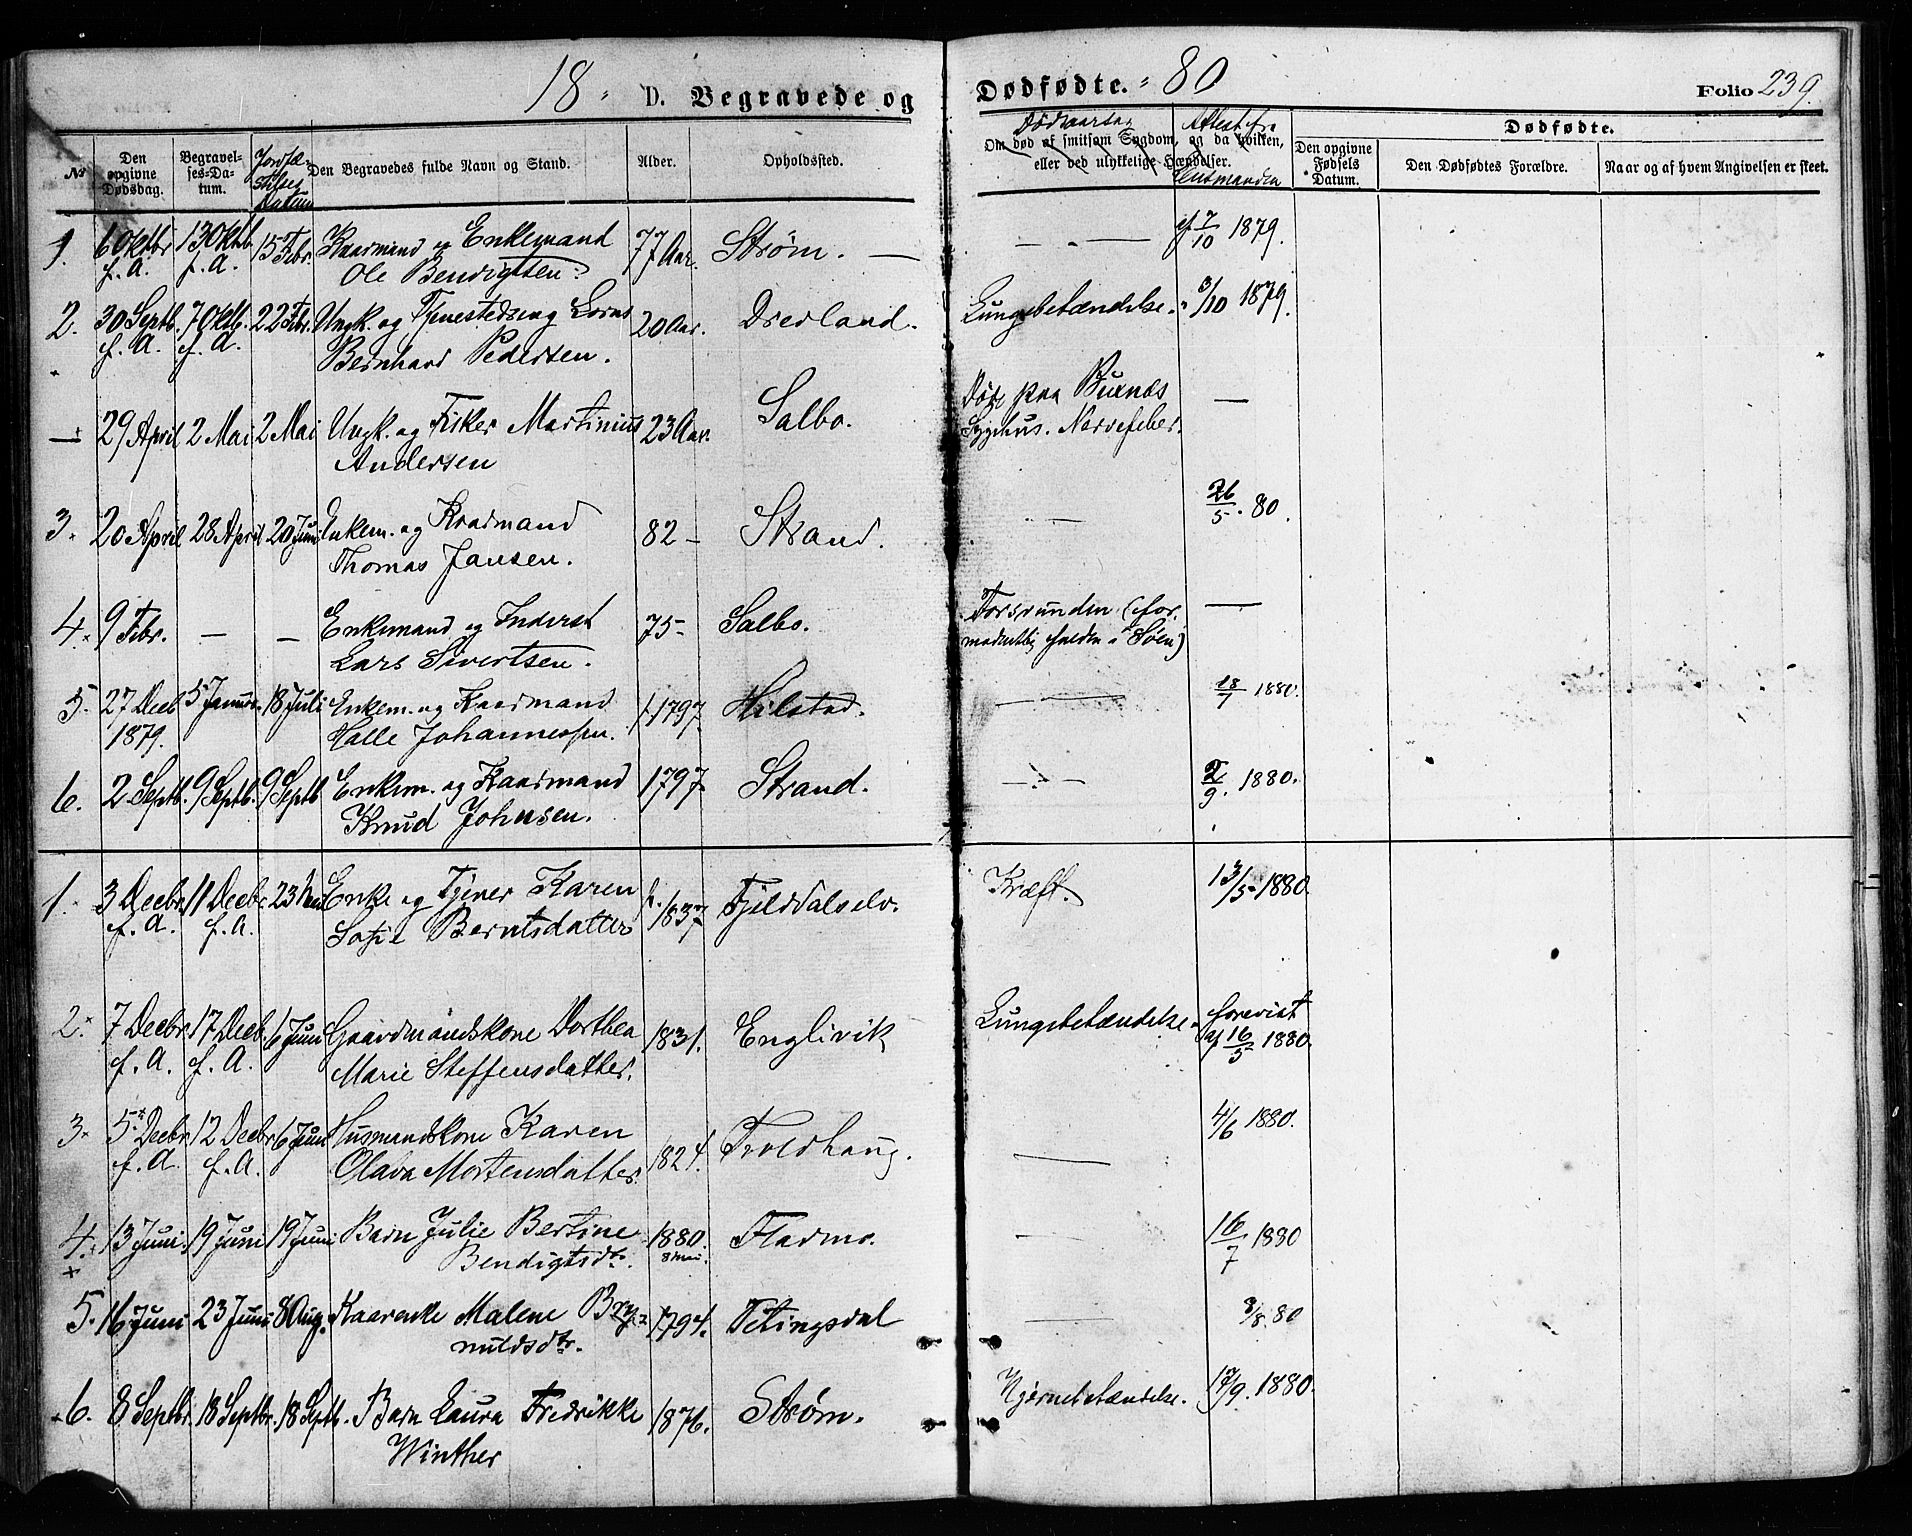 18 - D. Begravede og Dødfødte. - 80 Folio 239.
No
Den opgivne Dødsdag.
Begravelses-Datum.
Jordfæstelses Datum
Den Begravedes fulde Navn og Stand.
Alder.
Opholdssted.
Dødsaarsag
Om død af smitsom Sygdom, og da hvilken, eller ved ulykkelige Hændelser.
Attest fra Lensmanden
Dødfødte.
Den opgivne Fødsels Datum.
Den Dødfødtes Forældre.
Naar og af hvem Angivelsen er skeet.
1. 6 Oktbr 13 Oktb. 15 Febr. Kaarmand og Enkemand 77 Aar. Strøm. — — — 7/10 1879.
f. A. f. A. Ole Bendigtsen.
2. 30 Septb. 7 Oktb. 22 Febr. Ungk. og Tjenestedreng Lorns 20 Aar. Dverland. Lungebetændelse. 3/10 1879.
f. A. f. A. Bernhard Pedersen.
— 29 April 2 Mai 2 Mai Ungk. og Fisker Martinius 23 Aar. Salbo. Døde paa Buxnæs —
Andersen Sygehus. Nervefeber.
3. 20 April 28 April 20 Juni Enkem. og Kaarmand 82 - Strand. — 26/5. 80.
Thomas Jansen.
4. 9 Febr. — — Enkemand og Inderst 75 - Salbo. Forsvunden (for- —
Lars Sivertsen. modentlig falden i Søen)
5. 27 Decb 5 Januar. 18 Juli Enkem. og Kaarmand f. 1797 Hilstad. — 18/7 1880.
1879. Halle Johannessen.
6. 2 Septb. 9 Septb. 9 Septb Enkem. og Kaarmand 1797 Strand. — 2/9. 1880.
Knud Johnsen.
1. 3 Decbr. 11 Decbr 23 Mai Enke og Tjener Karen f. 1837 Fjelddalselv. Kræft. 13/5 1880.
f. A. f. A. Sofie Berntsdatter
2. 7 Decbr. 17 Decb. 6 Juni Gaardmandskone Dorthea 1831. Englivik Lungebetændelse. forevist
f. A. f. A. Marie Steffensdatter. 16/5 1880.
3. 5 Decbr. 12 Decbr 6 Juni Husmandskone Karen 1824. Troldhaug. — 4/6 1880.
f. A. f. A. Olava Mortensdatter.
4. 13 Juni. 19 Juni 19 Juni Barn Julie Bertine 1880. Fladmo. — 16/7 1880
Bendigtsdtr. 8 Mai.
5. 16 Juni 23 Juni 8 Aug. Kaarenke Malene Bry- 1794. Tetingsdal — 3/8. 80
nuldsdtr.
6. 8 Septbr. 18 Septbr. 18 Septb. Barn Laura Fredrikke 1876. Strøm. Hjernebetændelse. 17/9. 1880.
Winther